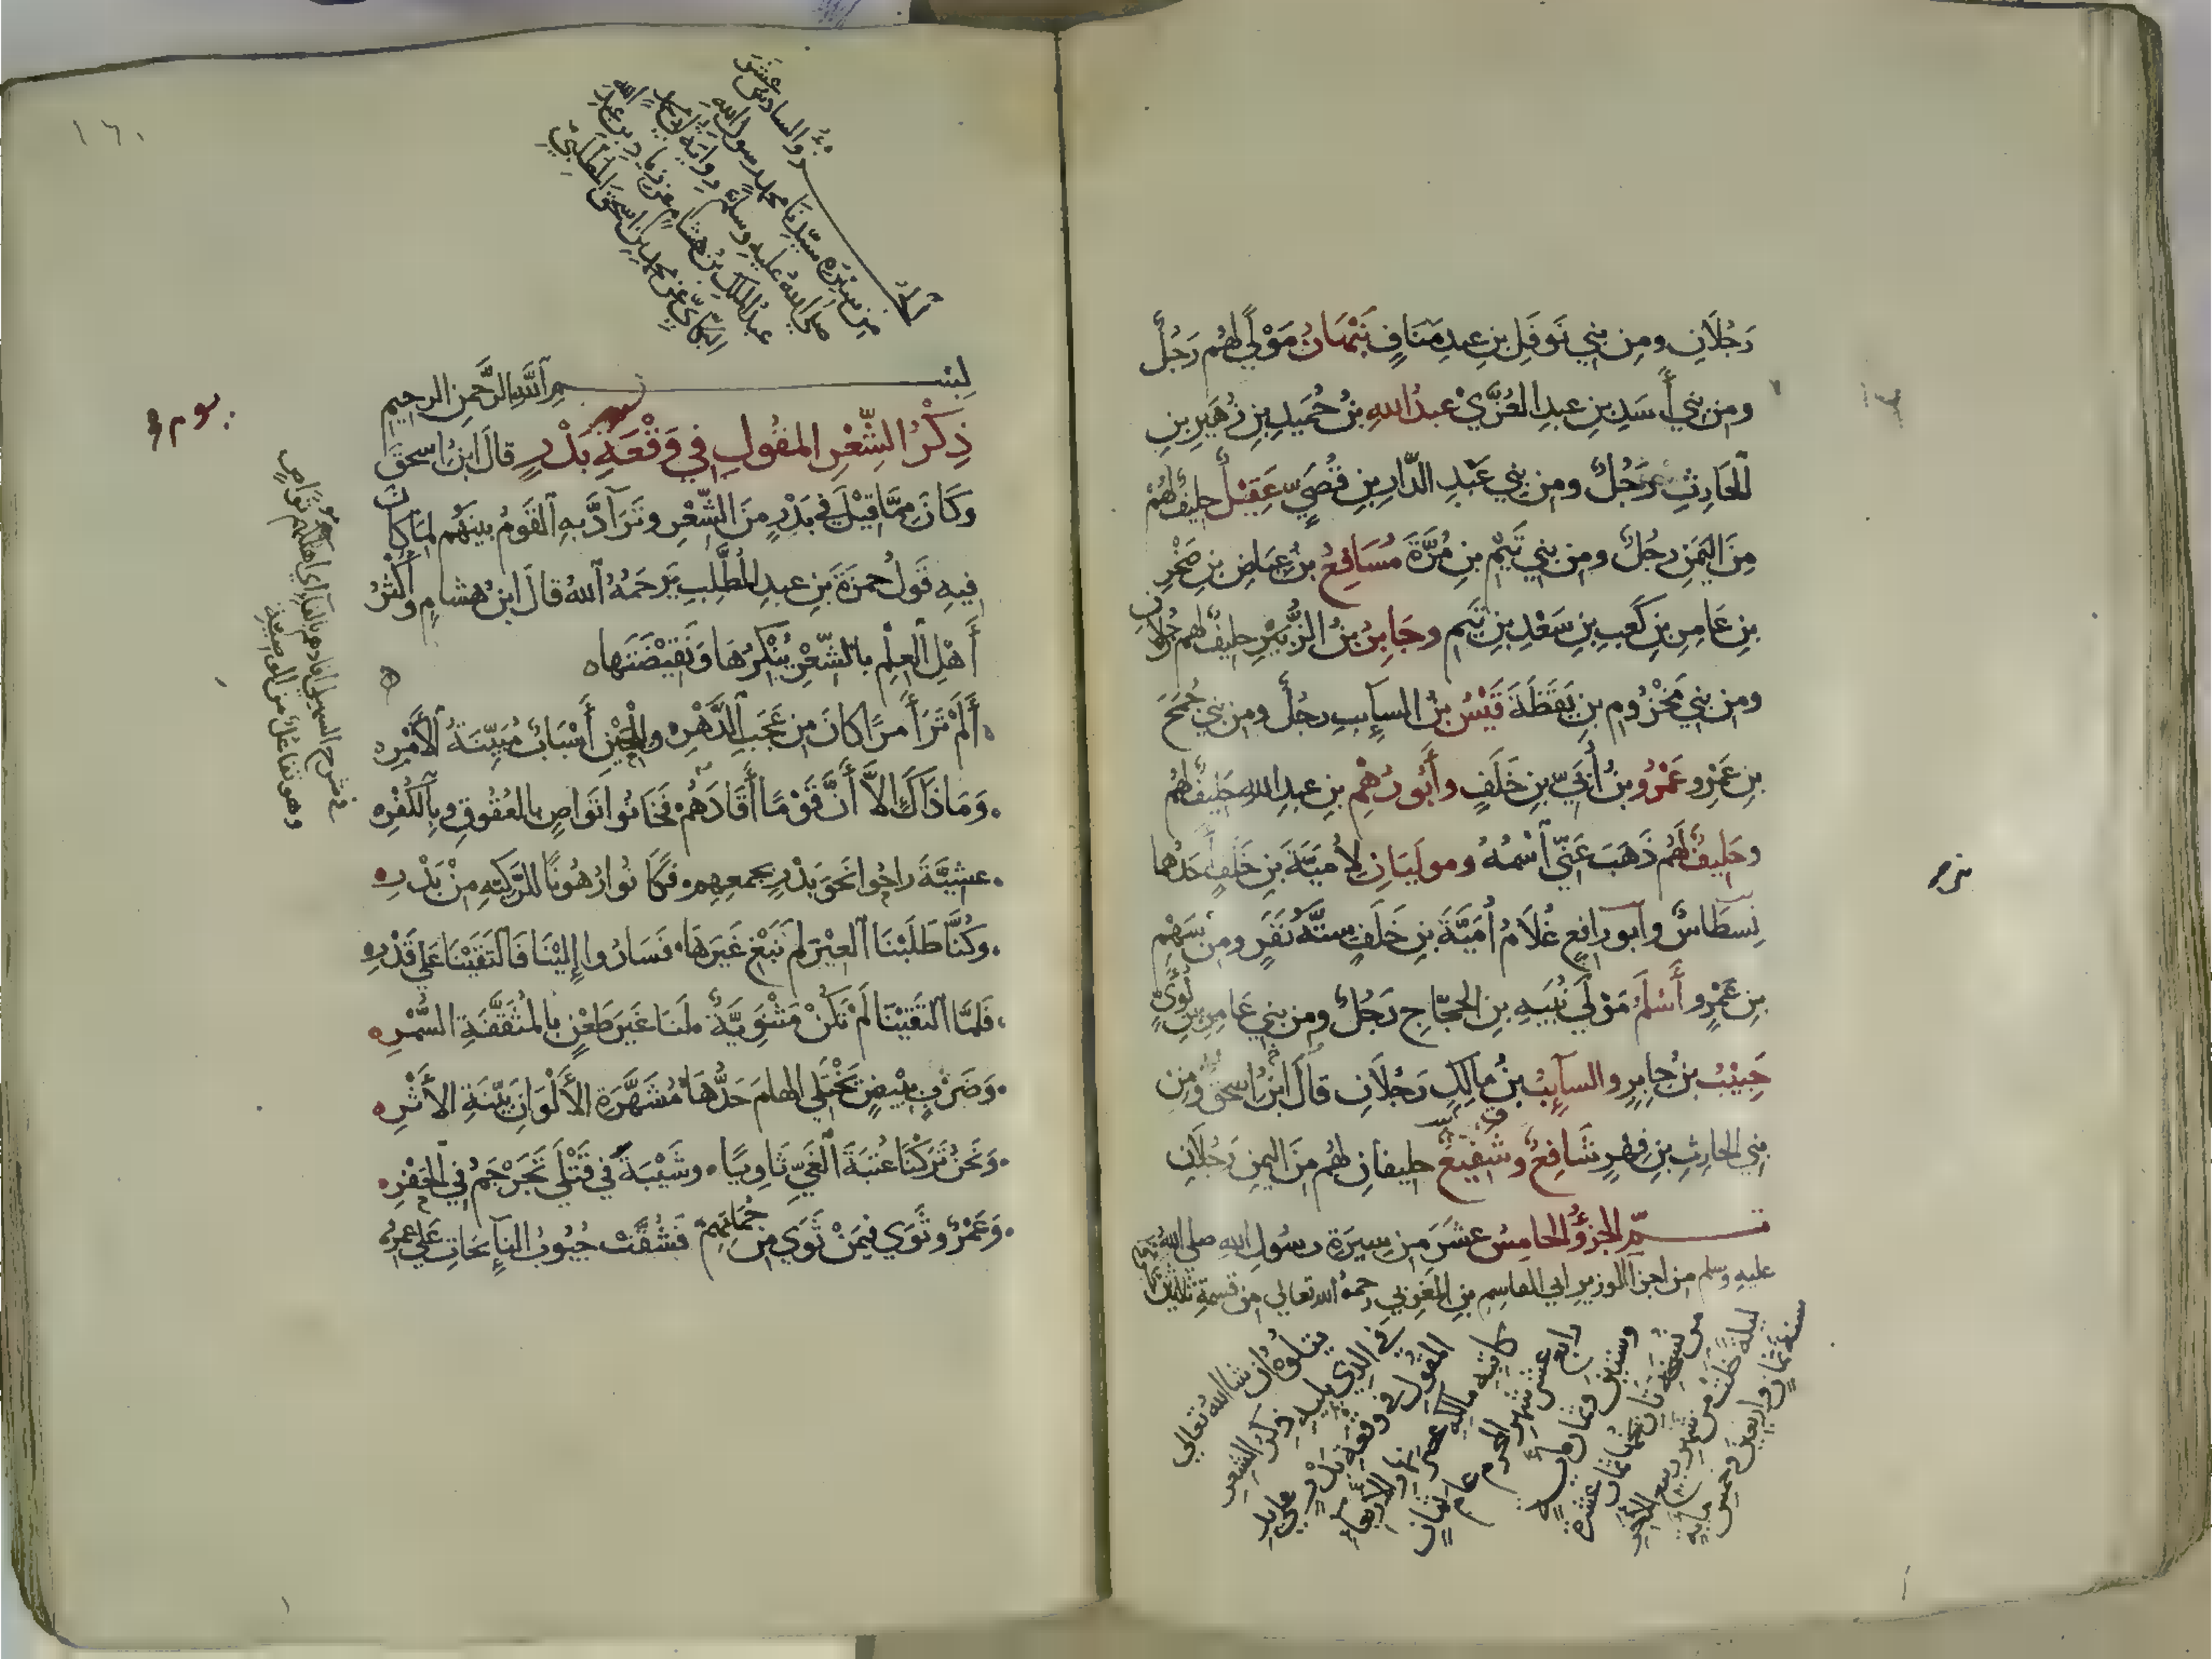 رَجُلَانِ ومِن بني نَوفَلِ بنِ عبدِ مَنَافٍ نَبْهَانُ مَوْلًى لهُم رَجُلٌ
ومن بني أَسَدِ بنِ عبدِ العُزَّى عبدُ اللهِ بنُ حُمَيدِ بنِ زُهَيرِ بنِ
الحَارِثِ رَجُلٌ ومن بني عَبْدِ الدّارِ بنِ قُصَيٍّ عَقِيْلٌ حليفٌ لهُم
مِنَ اليَمَنِ رجُلٌ ومن بني تَيْمِ بنِ مُرَّةَ مُسَافِعُ بنُ عِيَاضِ بنِ صَخْرِ
بنِ عَامِرِ بنِ كَعبِ بنِ سَعْدِ بنِ تَيمٍ وجَابِرُ بنُ الزُّبَيْرِ حليفٌ لهم رجُلَانِ
ومن بني مَخْزُومِ بنِ يَقَظَةَ قَيْسُ بنُ السآئِبِ رجُلٌ ومن بني جُمَحَ
بنِ عَمْرٍو عَمْرُو بنُ أُبَيِّ بنِ خَلَفٍ وأَبُو رُهْمِ بنِ عبدِ اللهِ حَلِيفٌ لهُم
وحَلِيفٌ لَهُم ذَهَبَ عَنِّي اسْمُهُ وموليَانِ لِأُمَيَّةَ بنِ خَلَفٍ أَحَدُهما
نِسطَاسٌ وأبو رافِعٍ غُلَامُ أُمَيَّةَ بنِ خَلَفٍ ستَّةُ نَفَرٍ ومن سَهْمِ
بنِ عَمْرٍو أَسْلَمُ مَوْلَى نُبَيهِ بنِ الحجّاجِ رَجُلٌ ومن بني عَامِرِ بنِ لُؤَيٍّ
حَبِيْبُ بنُ جابِرٍ والسآئِبُ بنُ مالِكٍ رَجُلَانِ قالَ ابنُ اسحقَ ومِن
بني الحارِثِ بنِ فِهْرٍ شَافِعٌ وشَفِيعٌ حليفانِ لهُم مِنَ اليمنِ رَجُلَانِ
تمّ الجزؤُ الخامِسُ عشَرَ مِن سِيرَةِ رسُولِ اللهِ صلى اللهُ
عليهِ وسلم من اجزآ الوزيرِ ابي القاسِمِ بنِ المغربي رحمهُ الله تعالى من قسمةِ ثلاثين
يتلُوهُ ان شا اللهُ تعالى
في الذي يليهِ ذِكرُ الشِّعرِ
المقُولِ في وقْعَةِ بَدْرٍ على يدِ
كاتبِهِ مالكِهِ عصر نهارِ الأربعآء
رابع عشر شهرِ المحرم عام ثمانٍ
وستين وثمان مايةٍ
من نسخةٍ تاريخُها ثمان عشرة
ليلةً خلت من شهرِ ربيع الآخِرِ
سنةَ ثمانٍ واربعين وخمس مايه
الجزؤُ السادسَ عشَرَ
مِن سيْرَةِ سيّدِنَا محمدٍ رسول اللهِ
صلى اللهُ عليهِ وسلمَ رِوايَةُ ابي محمدٍ
عبدِ الملكِ بنِ هشامٍ عن زيادِ بنِ عبدِ اللهِ
البكّائيِّ عن محمدِ بنِ اسحقَ المطَّلبيِّ
١٦٠
بسم اللهِ الرَّحمنِ الرحيمِ
ذِكْرُ الشِّعْرِ المقُولِ في وَقْعَةِ بَدْرٍ قالَ ابنُ اسحقَ
وكَانَ مِمَّا قِيْلَ في بَدْرٍ مِنَ الشِّعْرِ وتَرَآدَّ بِهِ القَومُ بينَهُم لِمَا كانَ
فيهِ قَولُ حمزَةَ بنِ عبدِ المُطَّلِبِ يَرحَمُهُ اللهُ قالَ ابنُ هشامٍ وأَكثَرُ
أَهْلِ العِلْمِ بالشِّعْرِ يُنْكِرُهَا ونَقِيْضَتَها ه
أَلَمْ تَرَ أَمرًا كانَ مِن عَجَبِ الدَّهْرِ ه وللحَيْنِ أَسْبَابٌ مُبَيِّنَةُ الأَمْرِ ه
وَمَا ذَاكَ الاَّ أَنَّ قَوْمًا أَفَادَهُمْ فَخَانُوا تَوَاصٍ بالعُقُوقِ وبِالكُفْرِ ه
عشيَّةَ راحُوا نَحوَ بَدْرٍ بجمعِهِم ه فَكَانُوا رُهُونًا للرَّكِيَّةِ مِنْ بَدْرِ ه
وكُنَّا طَلَبْنَا العِيْرَ لم نَبْغِ غَيرَهَا ه فَسَارُوا إِلَيْنَا فَالتَقَيْنَا عَلى قَدْرِ ه
فَلمَّا التَقَيْنَا لَمْ تَكُنْ مَثْنَوِيَّةٌ ه لَنَا غَيرَ طَعْنٍ بالمُثَقَّفَةِ السُّمْرِ ه
وَضَرْبٍ بِبِيْضٍ يَخْتَلِي الهامَ حَدُّهَا ه مُشَهَّرَةِ الأَلْوَانِ بَيِّنَةِ الأَثْرِ ه
ونَحنُ تَرَكْنَا عُتبَةَ الغَيِّ ثَاوِيًا ه وشَيْبَةَ في قَتْلَى تَجَرْجَمُ في الجَفْرِ ه
وَعَمْرٌو ثَوَى فيمَنْ ثَوَى مِن حُمَاتِهِم فَشُقَّتْ جُيُوبُ النآئِحَاتِ عَلى عَمْرِو ه
في شرح السهيلي افادهم بالفآءِ اي اهلكهم تواصٍ
وهو تفاعُلٌ من الوصيَّةِ